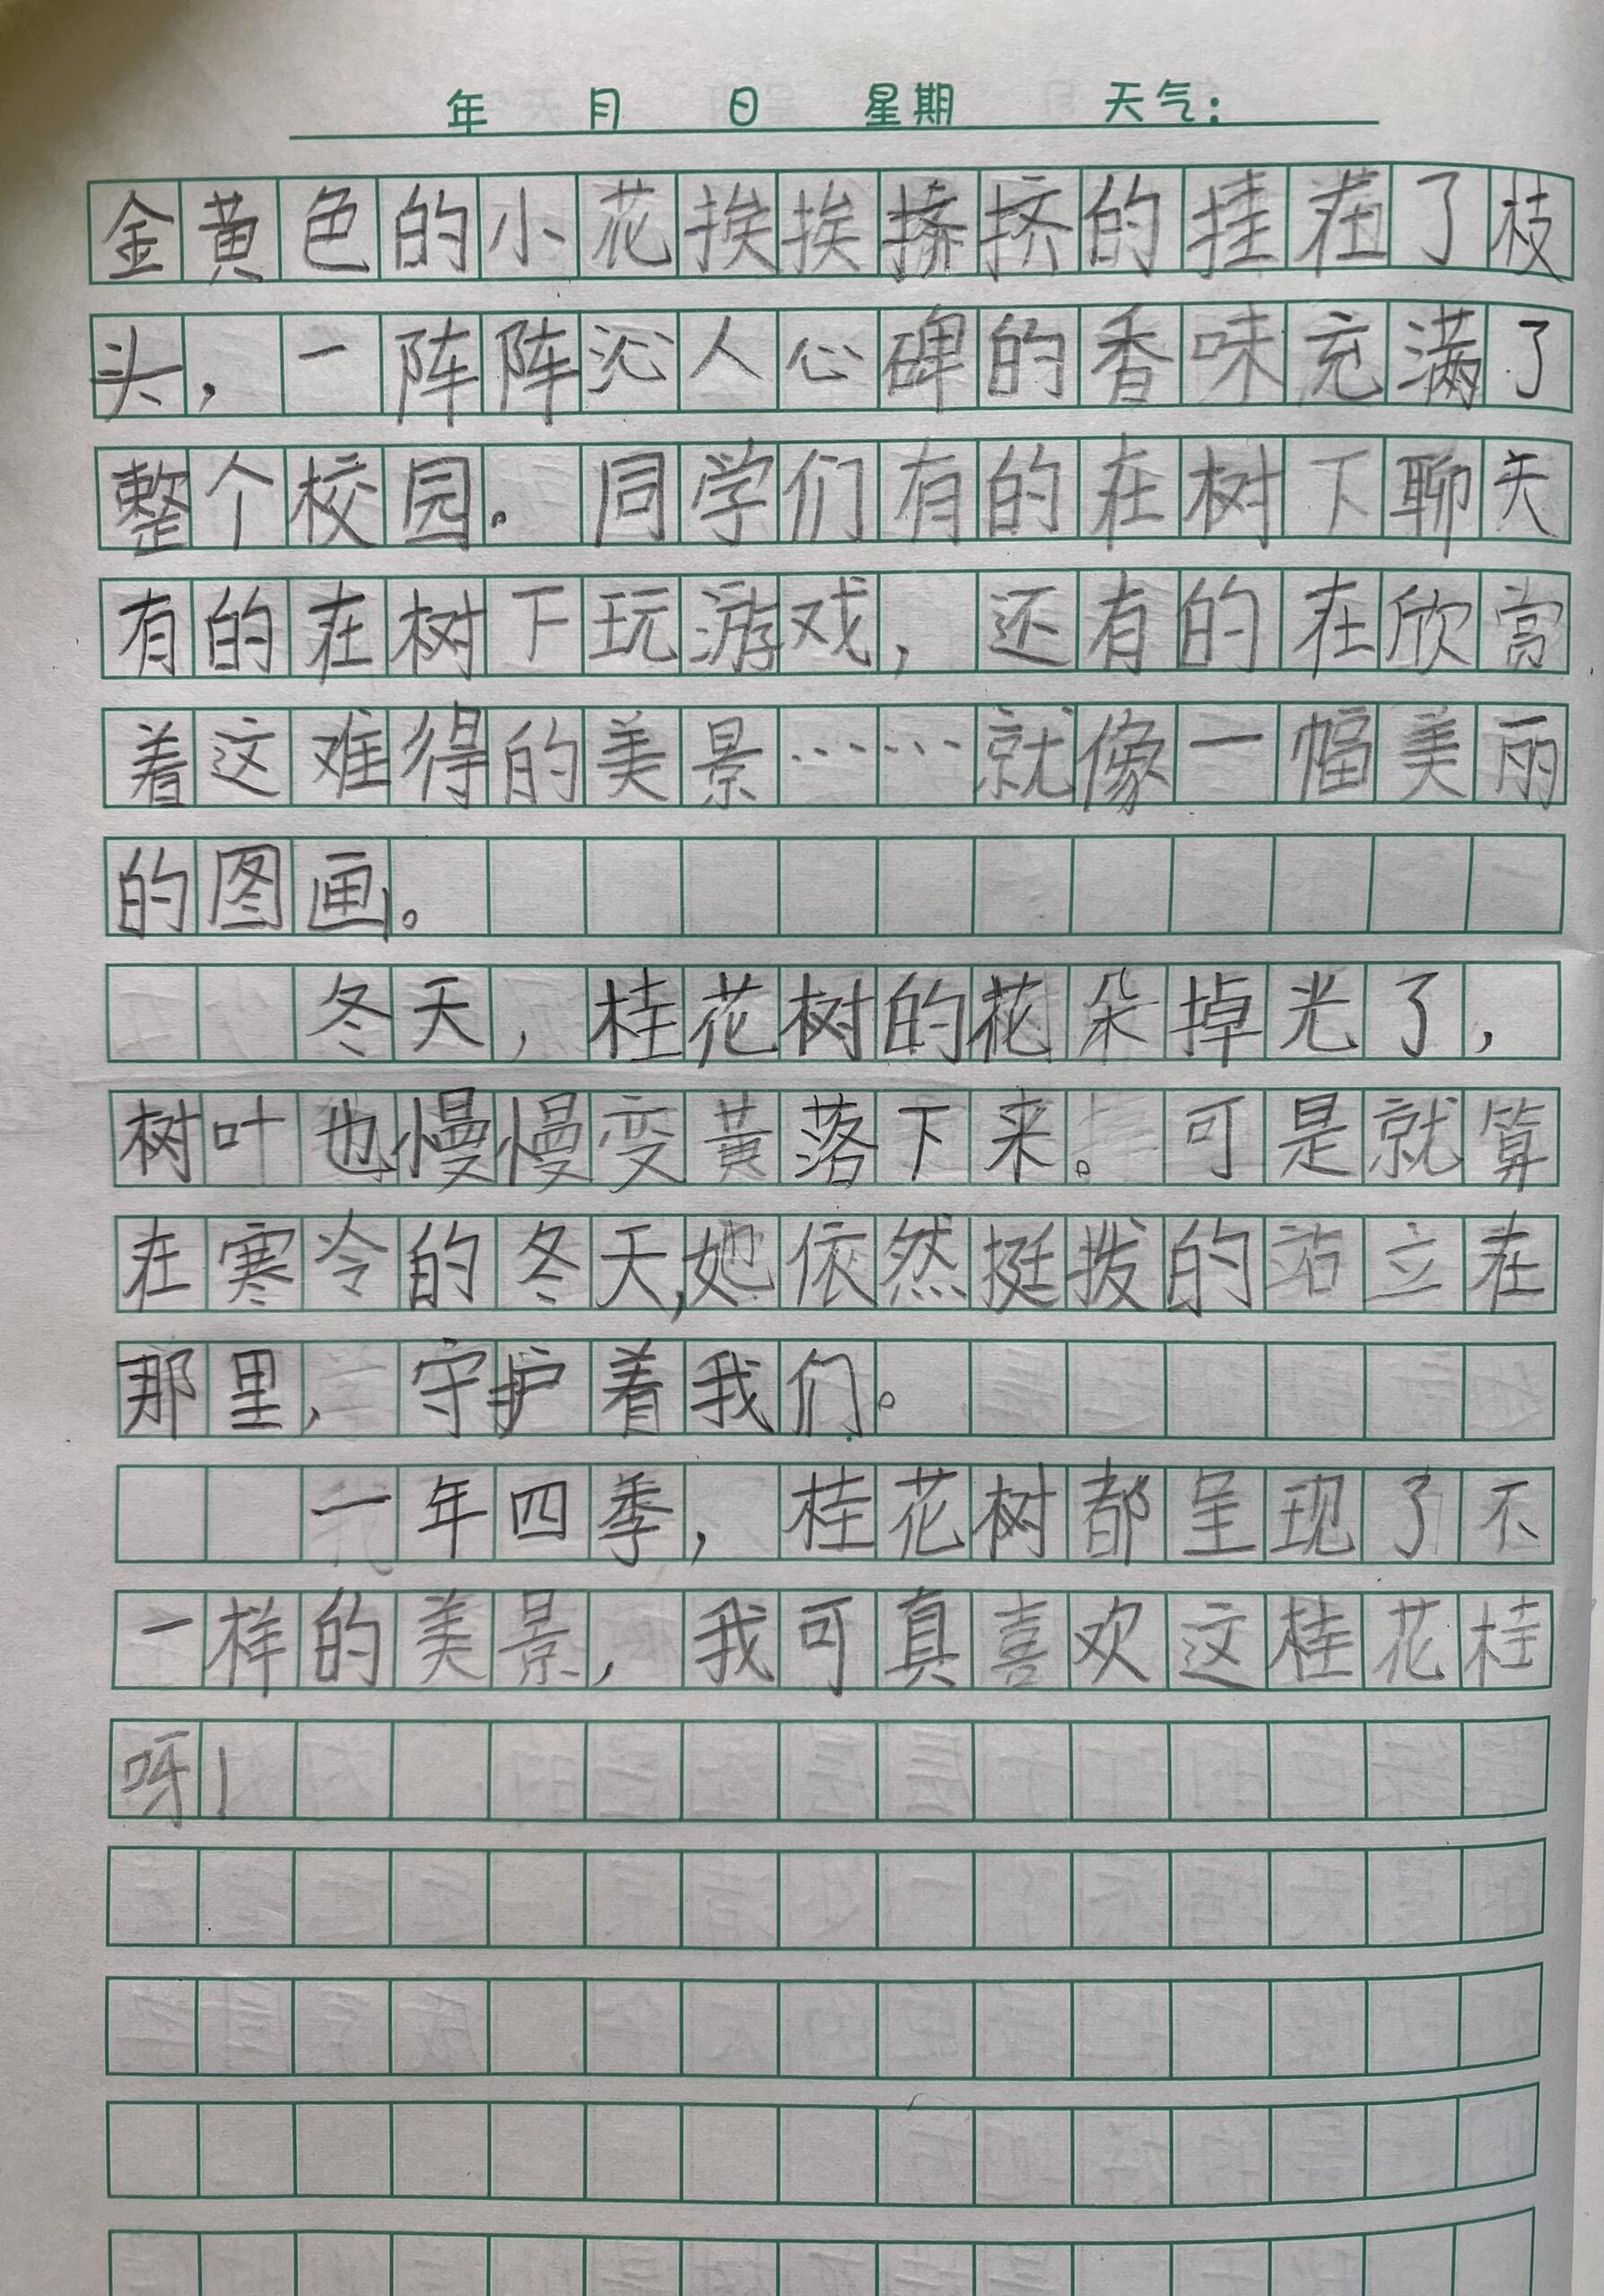 年 月 日 星期 天气：
金黄色的小花挨挨挤挤的挂在了枝
头，一阵阵沁人心碑的香味充满了
整个校园。同学们有的在树下聊天
有的在树下玩游戏，还有的在欣赏
着这难得的美景……就像一幅美丽
的图画。
冬天，桂花树的花朵掉光了，
树叶也慢慢变黄落下来。可是就算
在寒冷的冬天，她依然挺拨的站立在
那里，守护着我们。
一年四季，桂花树都呈现了不
一样的美景，我可真喜欢这桂花桂
呀！